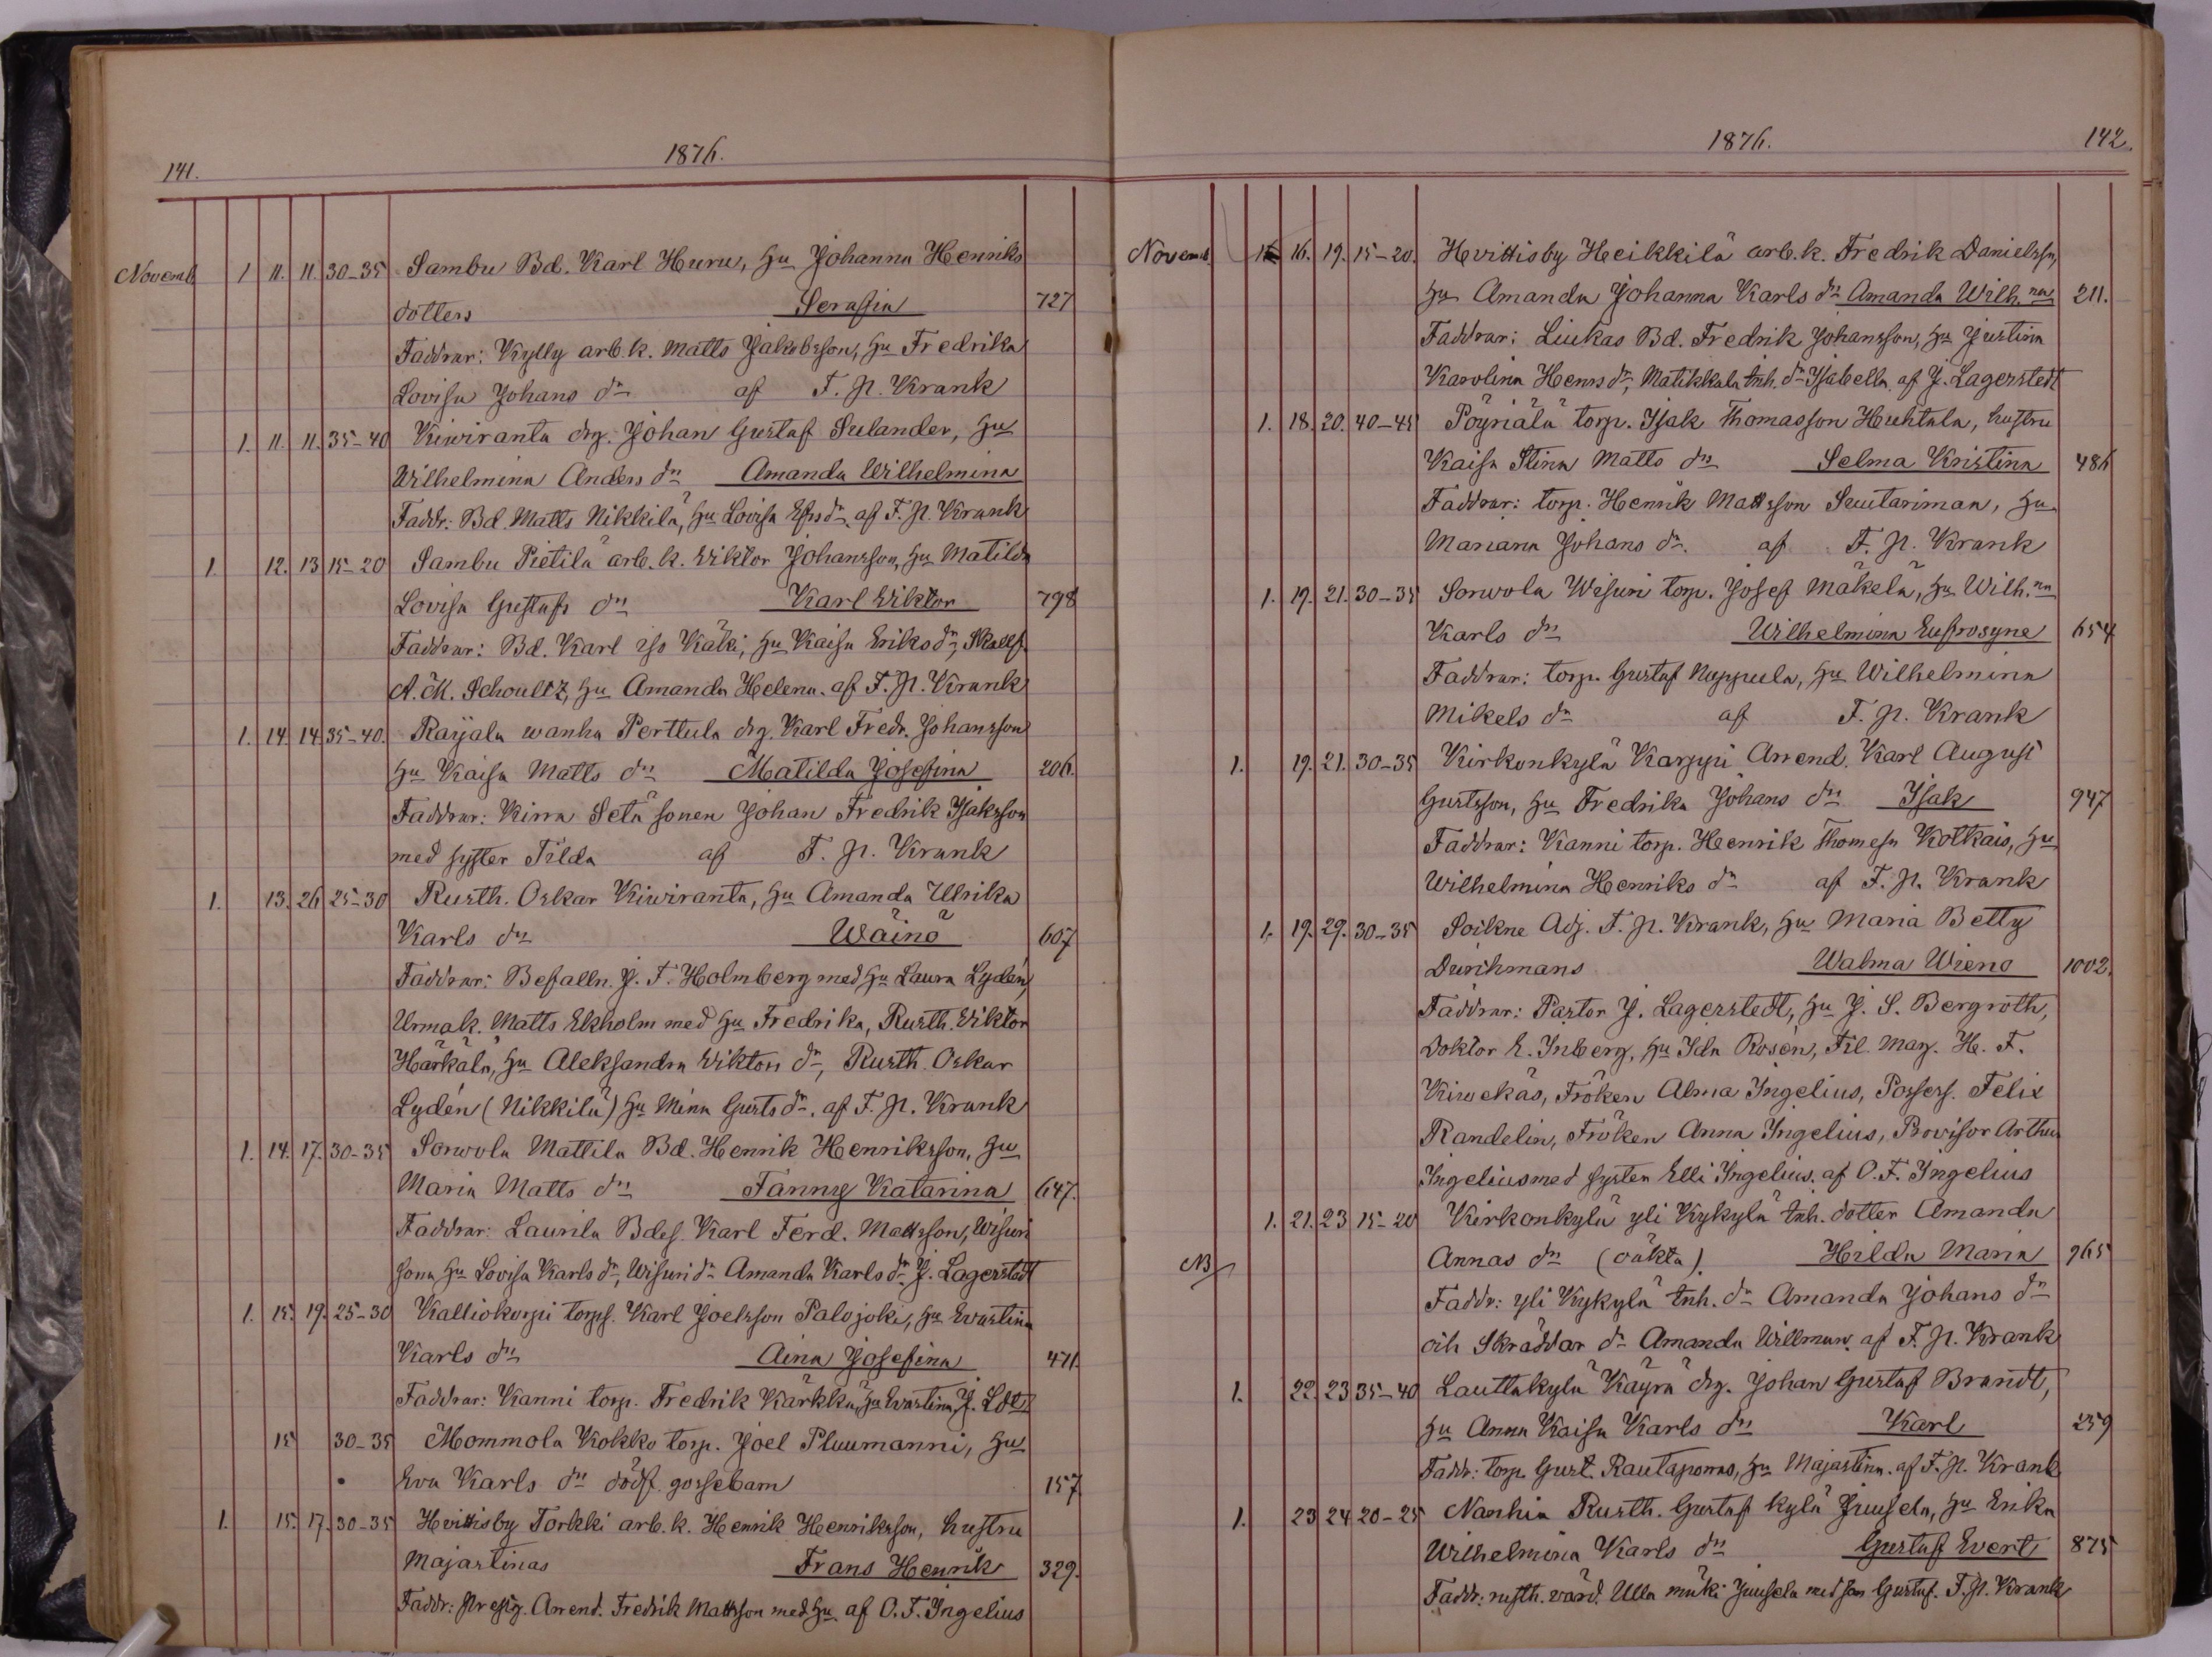 141.
1876.
Novemb. 1 11. 11. 30-35 Sambu Bd. Karl Huru, Hu Johanna Henriks
dotters Serafia 727
Faddrar: Kylly arb.k. Matts Jakobsson, Hu Fredrika
Lovisa Johans dr af F. N. Krank
1. 11. 11. 35-40 Kiwiranta drg. Johan Gustaf Sulander, Hu
Wilhelmina Anders dr Amanda Wilhelmina
Faddr: Bd. Matts Nikkilä, Hu Lovisa dr af F. N. Krank
1. 12. 13 15-20 Sambu Pietilä arb.k. Viktor Johansson, Hu Matilda
Lovisa Gustafs dr Karl Viktor 798
Faddrar: Bd. Karl iso Käki, Hu Kaisa Eriks dr,
A. M. Schoultz, Hu Amanda Helena. af F. N. Krank
1. 14. 14. 35-40. Raijala wanha Perttula drg. Karl Fredr. Johansson
Hu Kaisa Matts dr Matilda Josefina 206.
Faddrar: Kirra Setä sonen Johan Fredrik Isaksson
med syster Tilda af F. N. Krank
1. 13. 26 25-30 Rusth. Oskar Kiwiranta, Hu Amanda Ulrika
Karls dr Wäinö 607
Faddrar: Befalln. J. F. Holmberg med Hu Laura Lydén,
Urmak. Matts Ekholm med Hu Fredrika, Rusth. Viktor
Härkälä, Hu Aleksandra Viktors dr, Rusth. Oskar
Lydén (Nikkilä) Hu Mina Gusts dr. af F. N. Krank
1. 14. 17. 30-35 Sorwola Mattila Bd. Henrik Henriksson, Hu
Maria Matts dr Fanny Katarina 647.
Faddrar: Laurila Bdes. Karl Ferd. Mattsson, Wisuri
sona Hu Lovisa Karls dr, Wisuri dr Amanda Karls dr. J. Lagerstedt
1. 15. 19. 25-30 Kalliokorpi torps. Karl Joelsson Palojoki, Hu Evastina
Karls dr Aina Josefina 471.
Faddrar: Kanni torp. Fredrik Kärkkä, Hu Evastina, J. Ldt
15 30-35 Mommola Kokko torp. Joel Pluumanni, Hu
Eva Karls dr dödf. gossebarn 157
1. 15. 17. 30-35 Hvittisby Torkki arb.k. Henrik Henriksson, hustru
Majastinas Frans Henrik 329.
Faddr: Arend. Fredrik Mattsson med Hu. af O. F. Ingelius
1876.
142.
Novemb. 16. 19. 15-20. Hvittisby Heikkilä arb.k. Fredrik Danielsson,
Hu Amanda Johanna Karls dr Amanda Wilh.na 211.
Faddrar: Liukas Bd. Fredrik Johansson, Hu Justina
Karolina Henrs dr, Matikkala inh. dr Isabella. af J. Lagerstedt
1. 18. 20. 40-45 Pöyriälä torp. Isak Thomasson Huhtala, hustru
Kaisa Stina Matts dr Selma Kristina 486
Faddrar: torp. Henrik Mattsson Suutariman, Hu
Mariana Johans dr. af F. N. Krank
1. 19. 21. 30-35 Sorwola Wisuri torp. Josef Mäkelä, Hu Wilh.na
Karls dr Wilhelmina Eufrosyne 654
Faddrar: torp. Gustaf Nuppula, Hu Wilhelmina
Mikels dr af F. N. Krank
1. 19. 21. 30-35 Kirkonkylä Karppi Arrend. Karl August
Gustsson, Hu Fredrika Johans dr Isak 947
Faddrar: Kanni torp. Henrik Thomess Kotkais, Hu
Wilhelmina Henriks dr af F. N. Krank
1. 19. 29. 30-35 Soikne Adj. F. N. Krank, Hu Maria Betty
Durchmans Walma Wieno 1002.
Faddrar: Pastor J. Lagerstedt, Hu J. S. Bergroth,
Doktor E. Inberg, Hu Ida Rosén, Fil. Mag. H. F.
Kiwekäs, Fröken Alma Ingelius, Possess. Felix
Randelin, Fröken Anna Ingelius, Provisor Arthur
Ingelius med syster Elli Ingelius. af O. F. Ingelius
1. 21. 23 15-20 Kirkonkylä yli Kykylä inh. dotter Amanda
NB Annas dr (oäkta). Hilda Maria 965
Faddr: yli Kykylä inh. dr Amanda Johans dr
och Skräddar dr Amanda Willman. af F. N. Krank
1. 22. 23 35-40 Lauttakylä Käyrä drg. Johan Gustaf Brandt,
Hu Anna Kaisa Karls dr Karl 259
Faddr: torp. Gust. Rautaporras, Hu Majastina. af F. N. Krank
1. 23 24 20-25 Nanhia Rusth. Gustaf kylä Juusela, Hu Erika
Wilhelmina Karls dr Gustaf Evert 875
Faddr: rusth. värd. Ulla mäki Juusela med son Gustaf. F. N. Krank